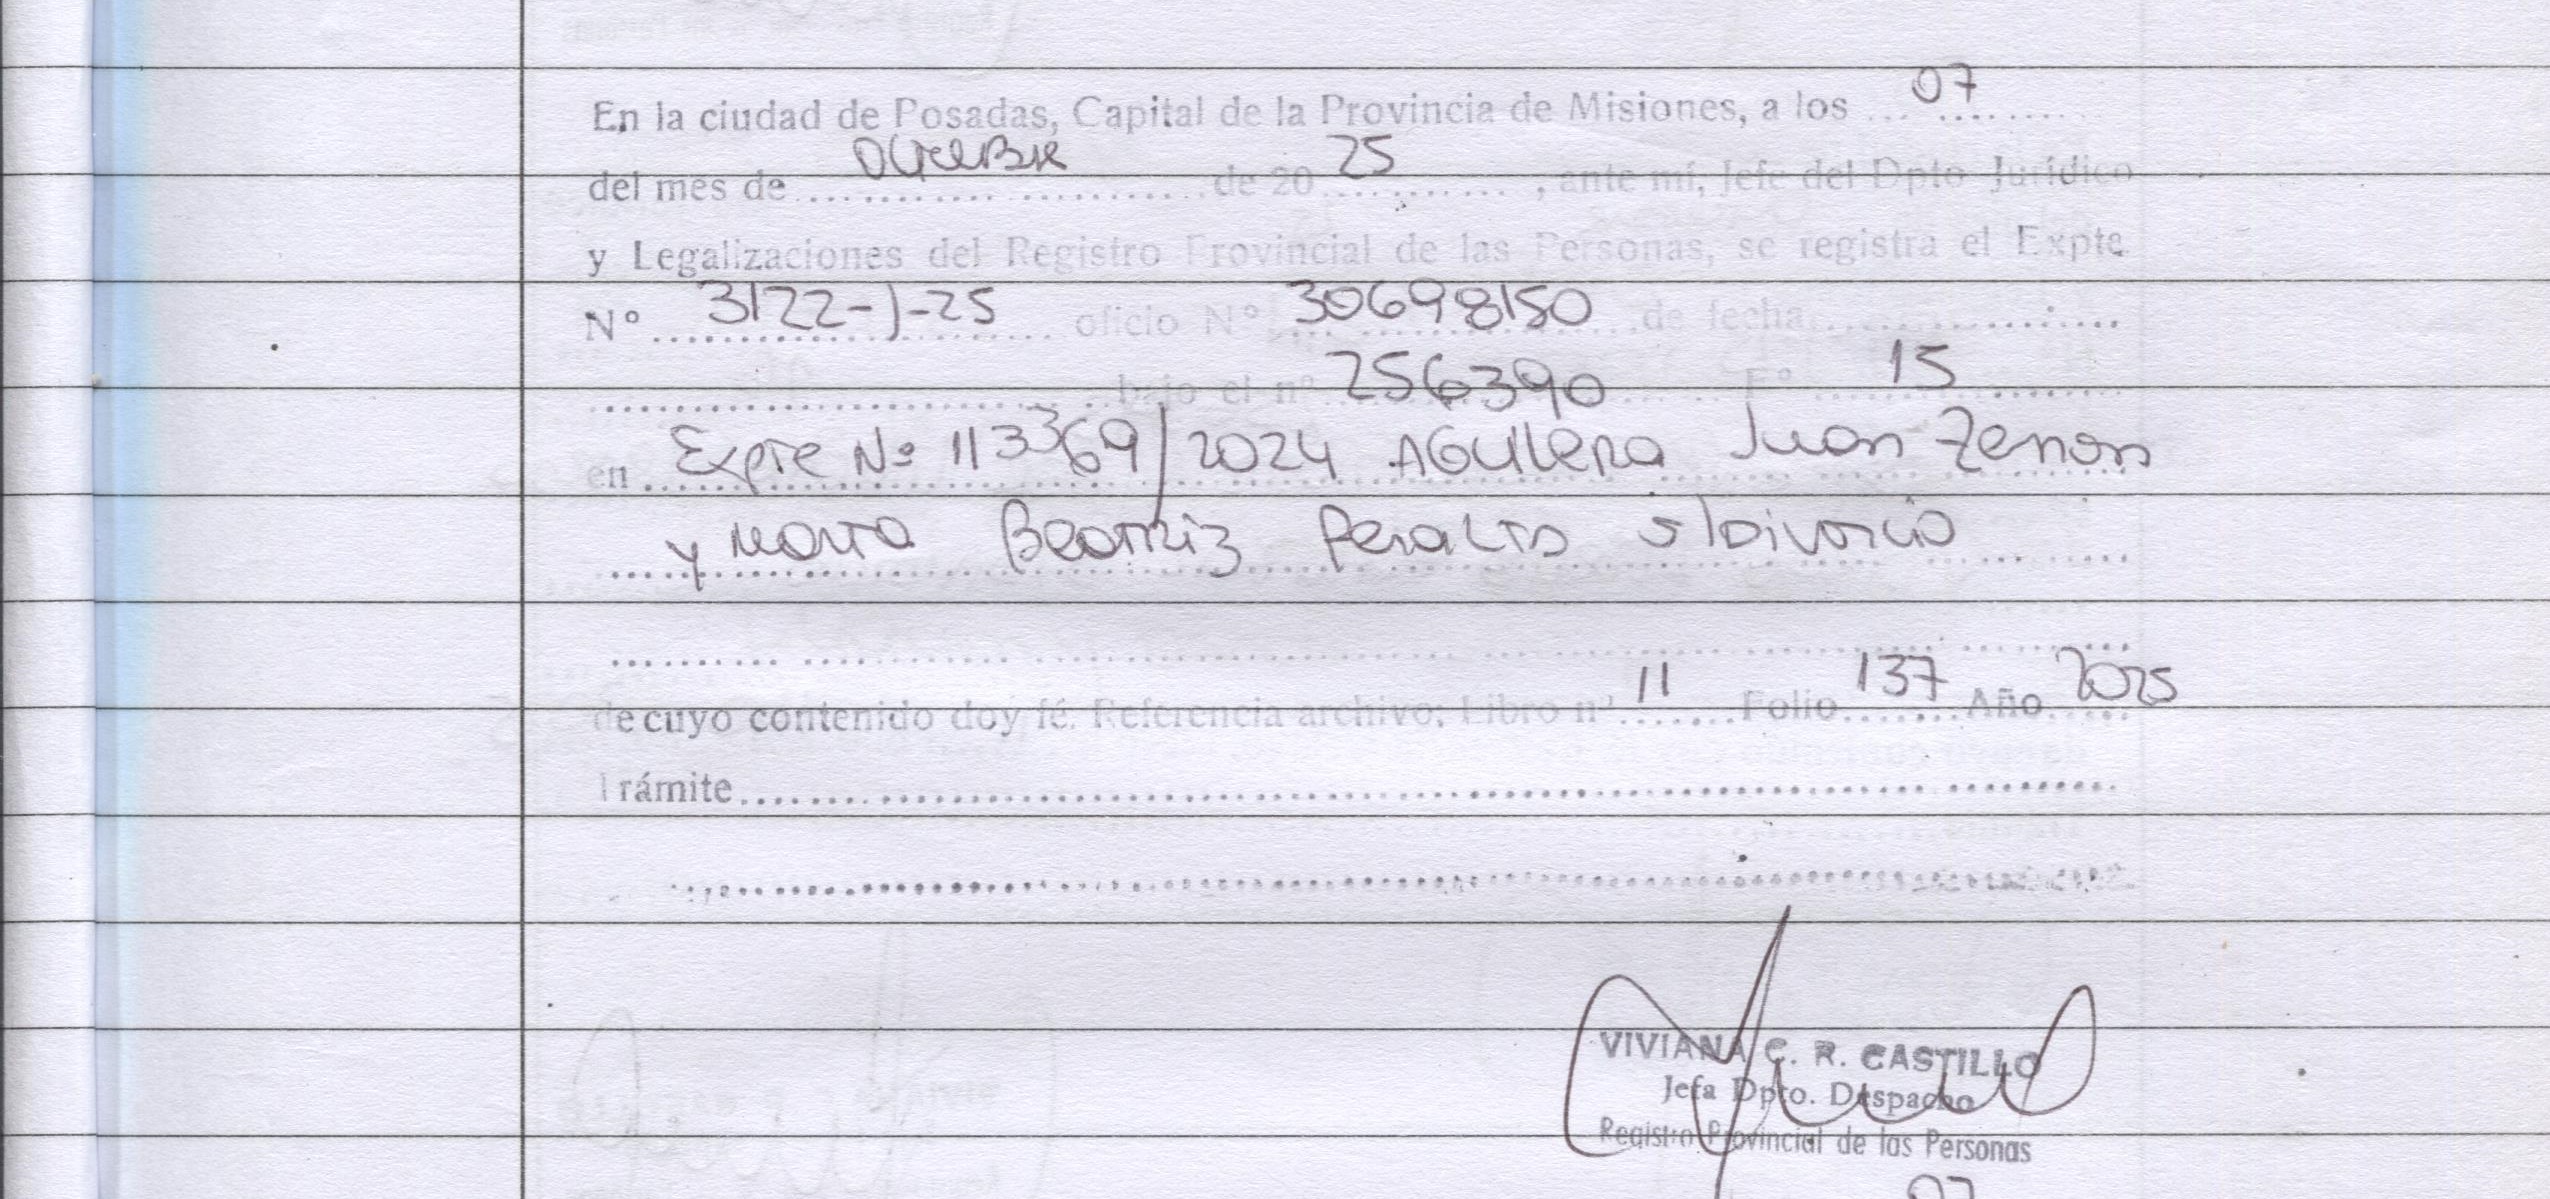 En la ciudad de Posadas, Capital de la Provincia de Misiones, a los ... 07 ...
del mes de ... Octubre ... de 20 25 ..., ante mí, Jefe del Dpto Jurídico
y Legalizaciones del Registro Provincial de las Personas, se registra el Expte
N° 3122-J-25 oficio N° 30698150 de fecha ...
... bajo el n° 256390 F° 15 ...
en Expte Nº 113369/2024 AGUILERA Juan Zenon
y Marta Beatriz Peralta s/Divorcio
de cuyo contenido doy fé. Referencia archivo: Libro n° 11 Folio 137 Año 2025
Trámite ...
VIVIANA C. R. CASTILLO
Jefa Dpto. Despacho
Registro Provincial de las Personas
07